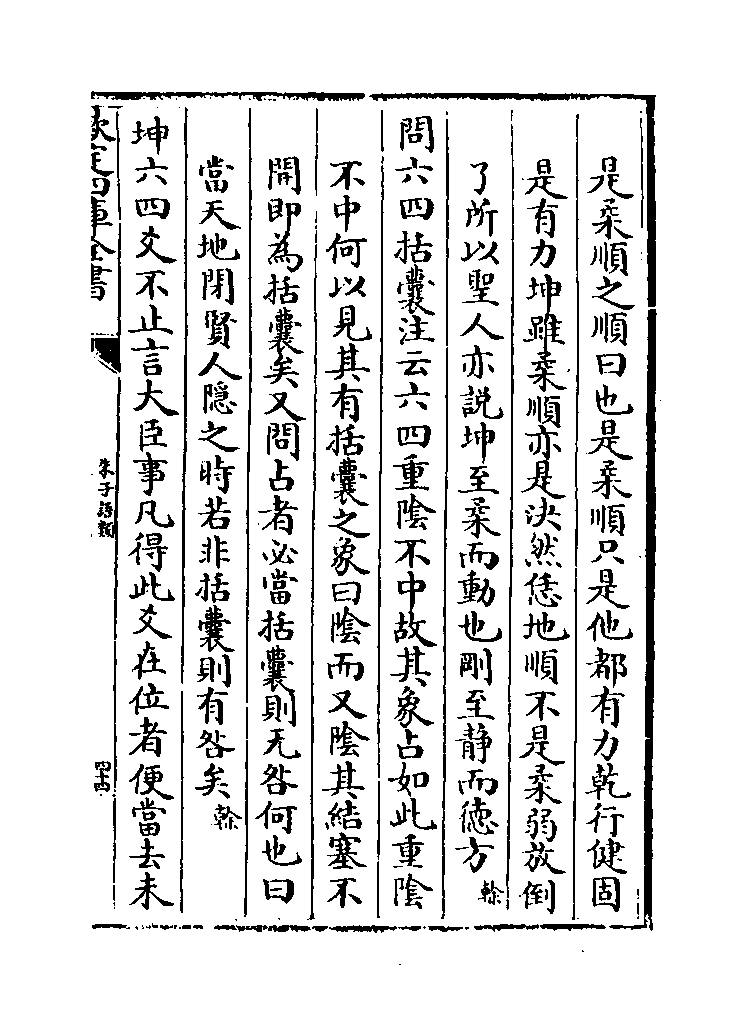 是柔順之順曰也是柔順只是他都有力乾行健固
是有力坤雖柔順亦是決然恁地順不是柔弱放倒
了所以聖人亦説坤至柔而動也剛至静而德方榦
問六四括囊注云六四重陰不中故其象占如此重陰
不中何以見其有括囊之象曰陰而又陰其結塞不
開即為括囊矣又問占者必當括囊則无咎何也曰
當天地閉賢人隱之時若非括囊則有咎矣榦
坤六四爻不止言大臣事凡得此爻在位者便當去未
欽定四庫全書
朱子語類
四十四